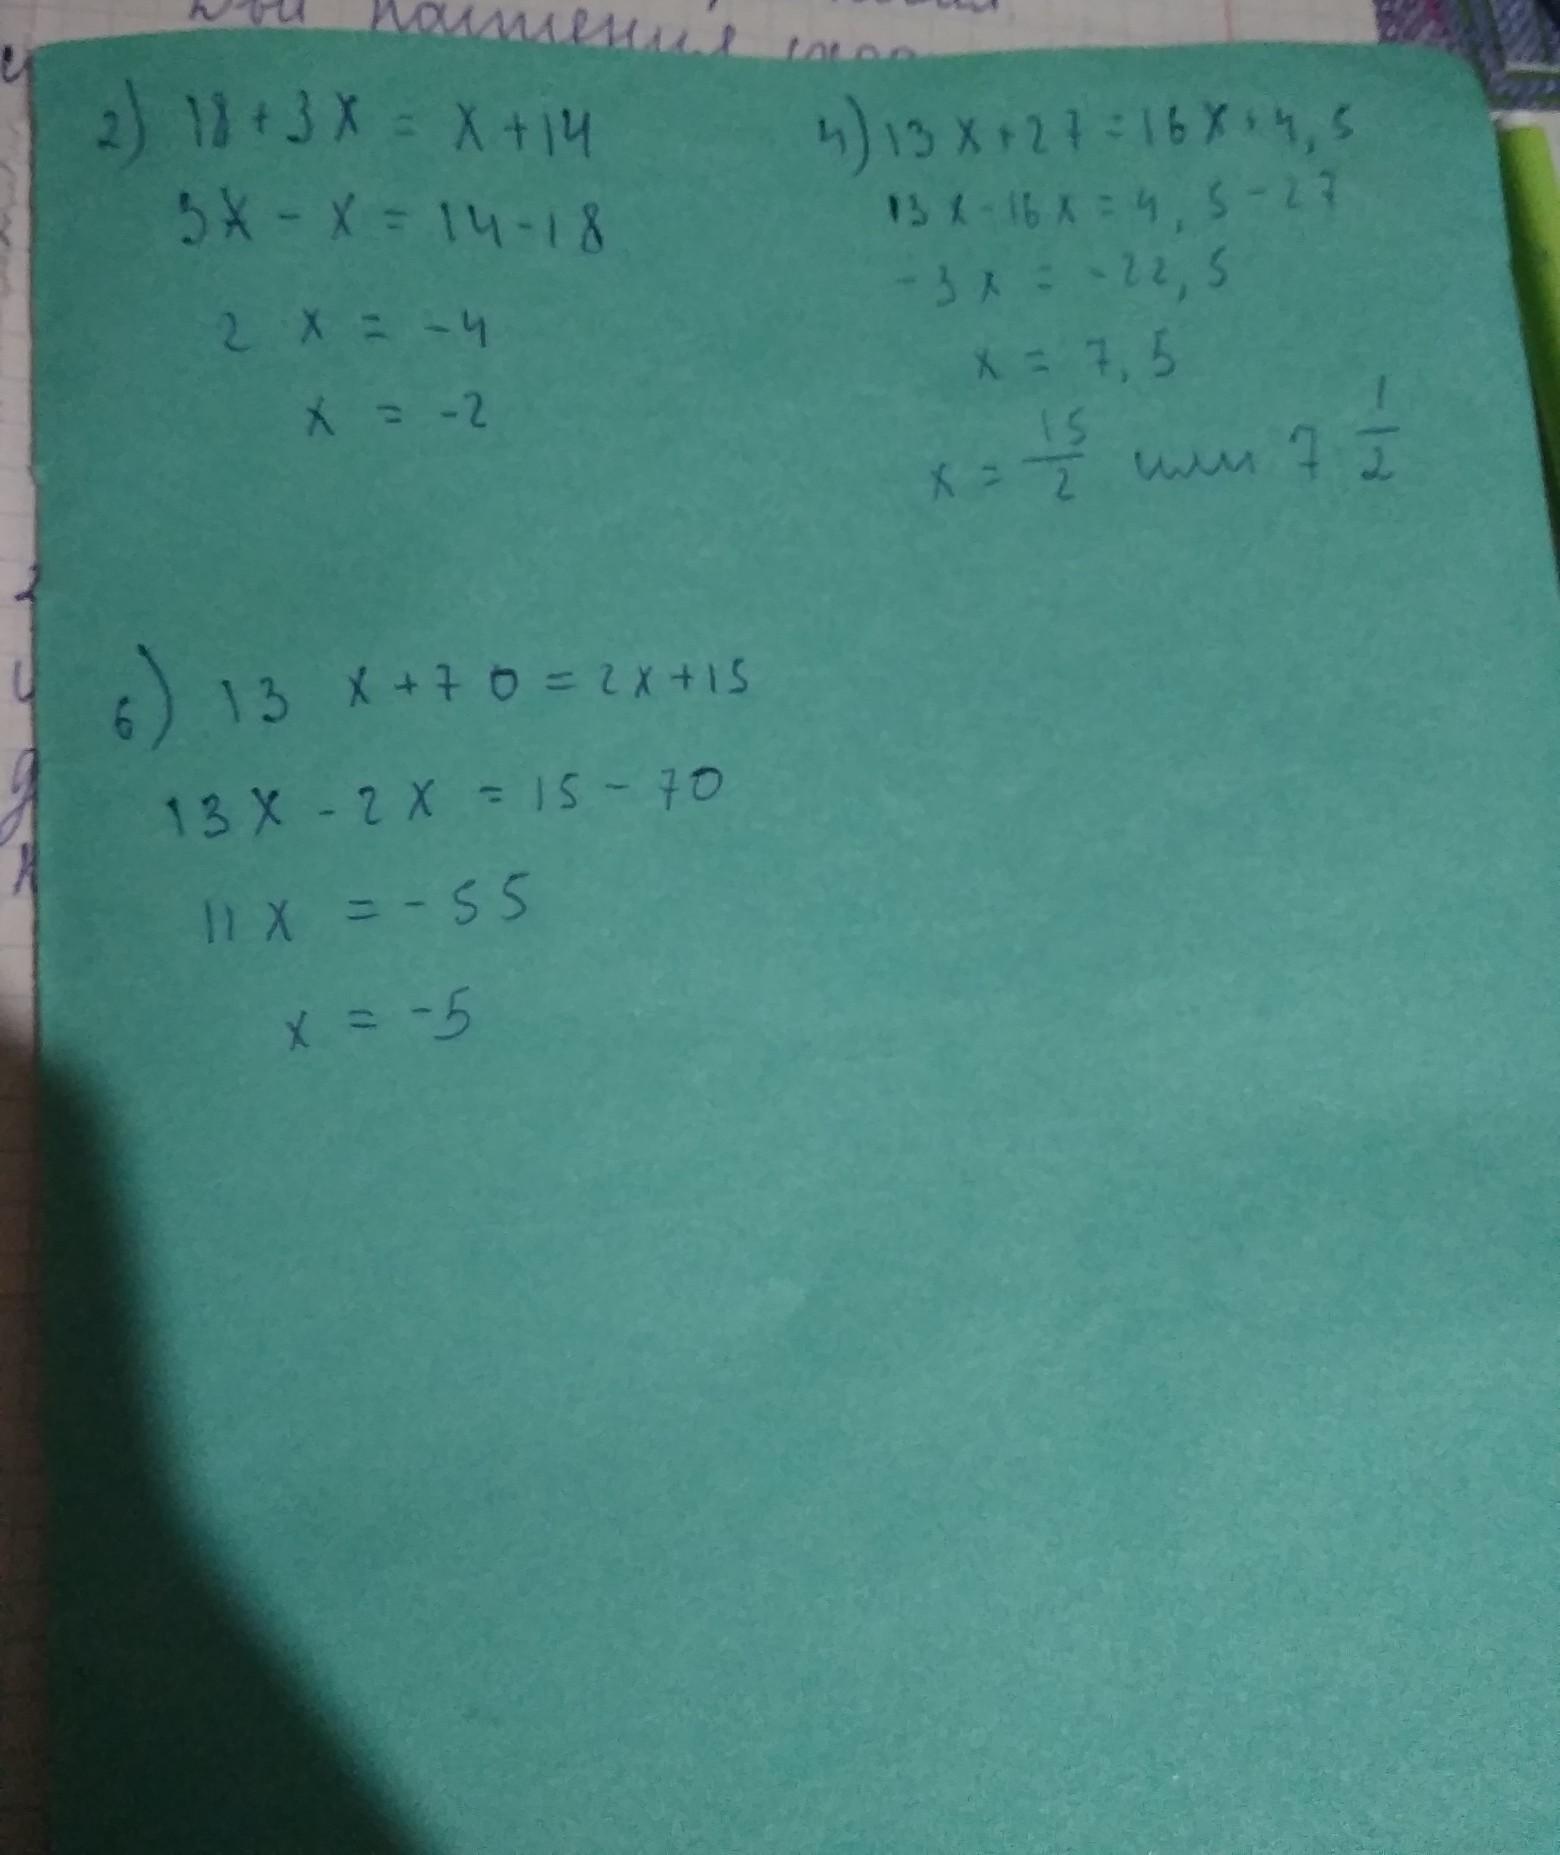 2) 18+3x = x+14
3x - x = 14-18
2 x = -4
x = -2
4) 13x+27=16x+4,5
13x-16x=4,5-27
-3x = -22,5
x = 7,5
x = 15/2 или 7 1/2
6) 13 x+70=2x+15
13x-2x=15-70
11x = -55
x = -5